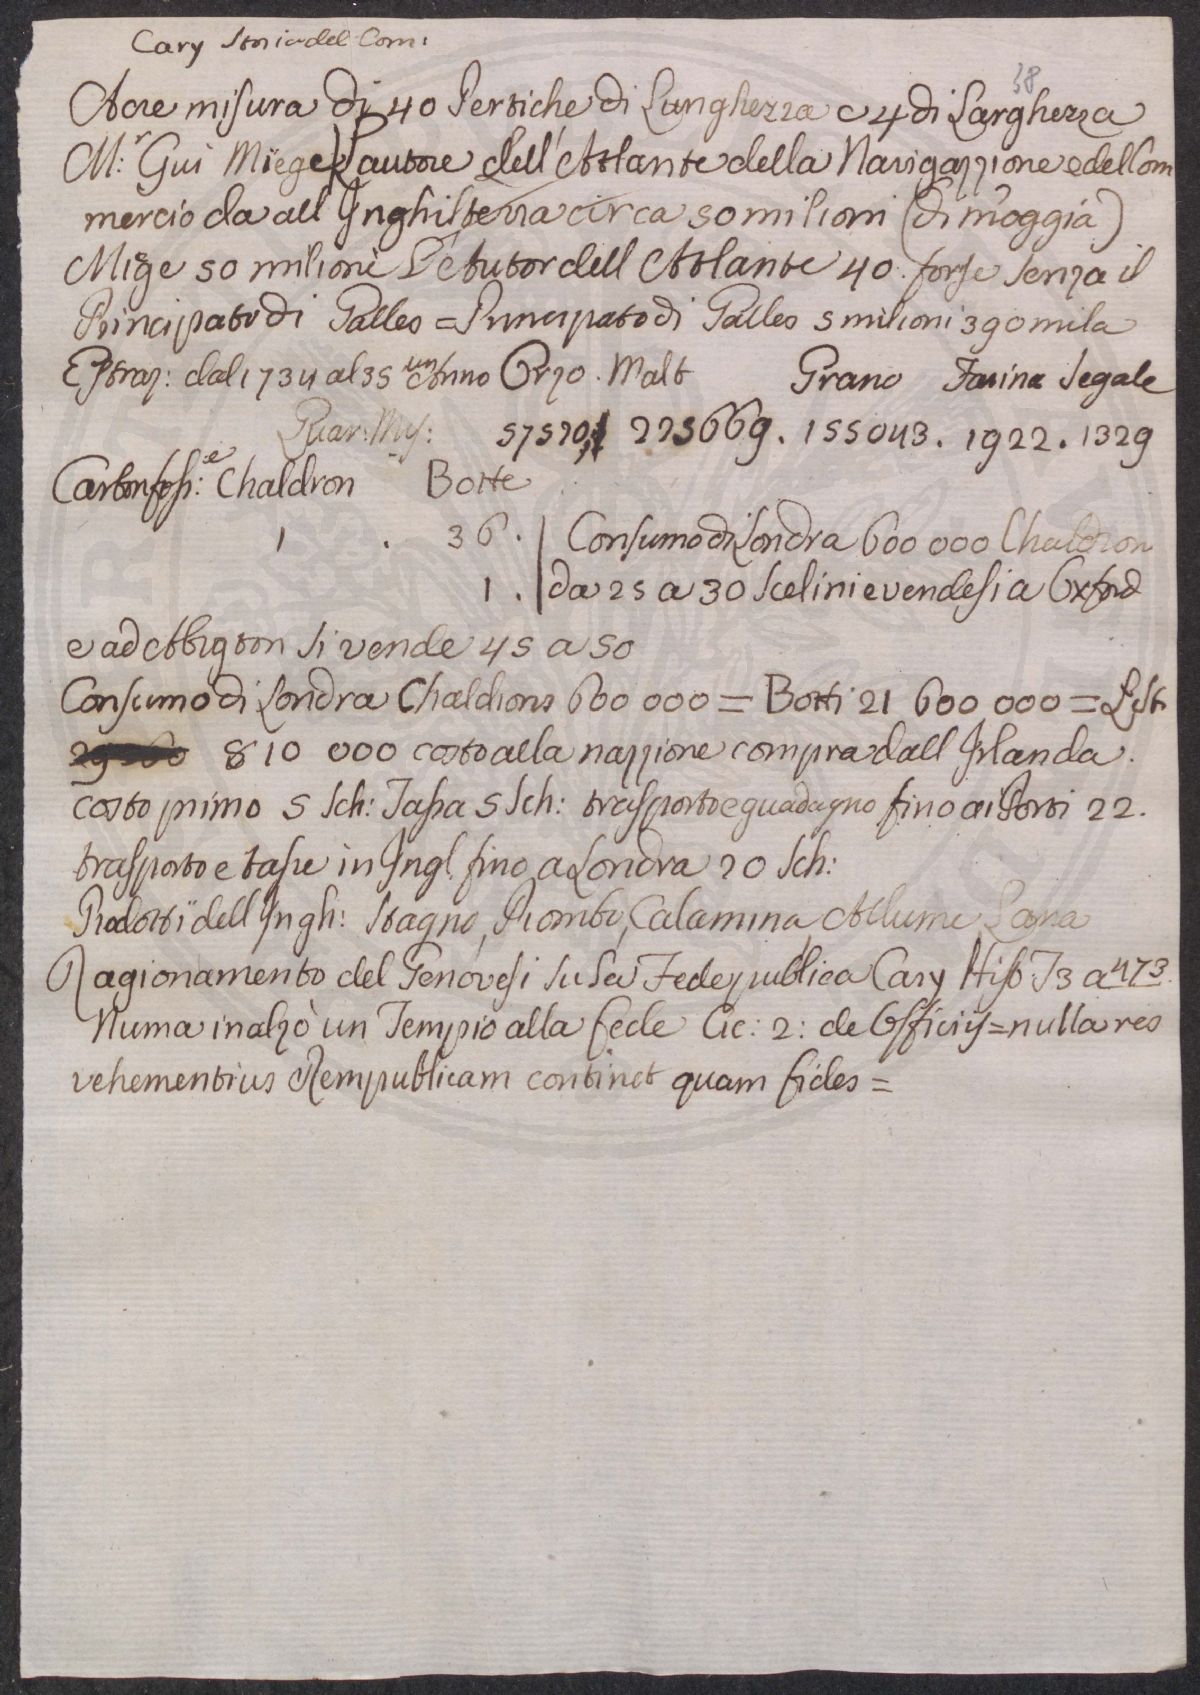 Cary Storia del Com:
38
Acre misura di 40 Pertiche di Lunghezza e 4 di Larghezza
M:r Gui Miege L'autore dell'Atlante della Navigazzione e del Com
mercio da all Inghilterra circa 50 milioni (di moggia)
Miege 50 milioni L'Autor dell Atlante 40. forse senza il
Principato di Galles = Principato di Galles 5 milioni 390 mila
Estraz: dal 1734 al 35 un Anno Orzo. Malt Grano Farina Segale
Quar: Mis: 57520, 223669. 155043. 1922. 1329
Carbon fossi:e Chaldron Botte
1 . 36. Consumo di Londra 600 000 Chaldron
1. da 25 a 30 Scelini e vendesi a Oxford
e ad Abigton si vende 45 a 50
Consumo di Londra Chaldrons 600 000 = Botti 21 600 000 = L. St
810 000 costo alla nazzione compra dall Irlanda.
costo primo 5 Sch: Tassa 5 Sch: trasporto e guadagno fino ai Porti 22.
trasporto e tasse in Ingl. fino a Londra 20 Sch:
Prodotti dell Ingh: Stagno, Piombo, Calamina Allume Lana
Ragionamento del Genovesi su la Fede publica Cary Hist T3 a 473.
Numa inalzò un Tempio alla fede Cic: 2: de Officiis = nulla res
vehementius Rempublicam continet quam fides =